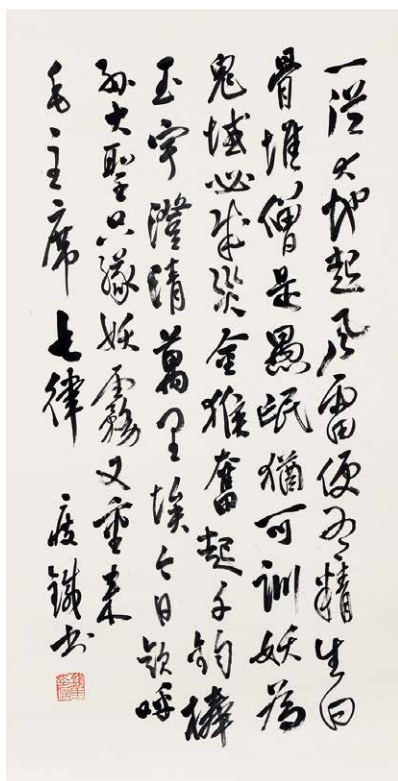 一從大地起風雷便有精生白
骨堆僧是愚氓猶可訓妖為
鬼蜮必成災金猴奮起千鈞棒
玉宇澄清萬里埃今日歡呼
孫大聖只緣妖霧又重來
毛主席七律 瘦鐵書